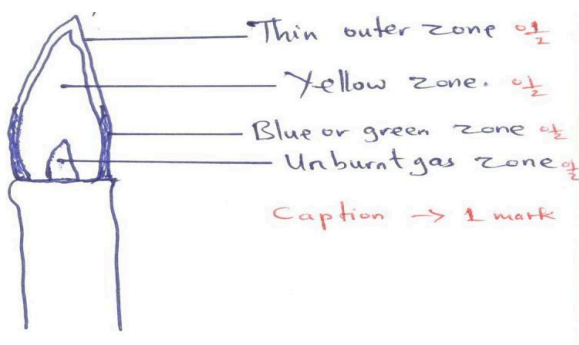 Thin outer zone 0½
Yellow zone. 0½
Blue or green zone 0½
Unburnt gas zone 0½
Caption → 1 mark